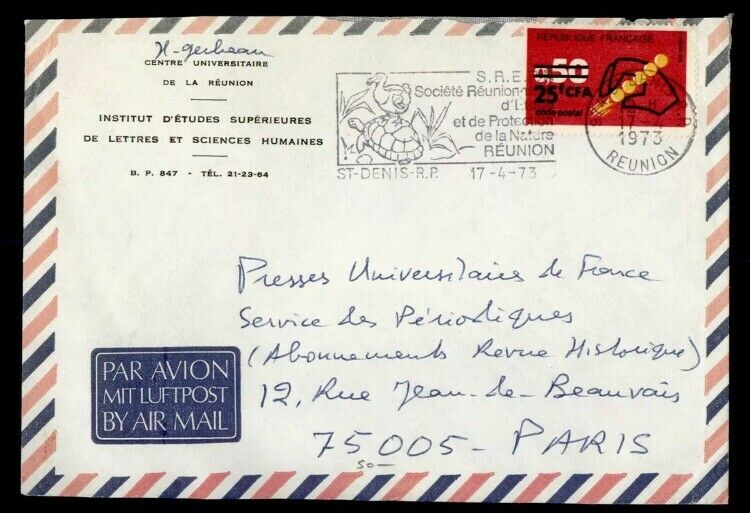 H. Gerbeau
CENTRE UNIVERSITAIRE
DE LA RÉUNION
INSTITUT D'ÉTUDES SUPÉRIEURES
DE LETTRES ET SCIENCES HUMAINES
B. P. 847 - TÉL. 21-23-64
S.R.E.
Société Réunion
d'Et
et de Protection
de la Nature
RÉUNION
ST-DENIS-R.P. 17-4-73
REPUBLIQUE FRANÇAISE
0,50
25F CFA
code postal
17-
1973
REUNION
Presses Universitaires de France
Service des Périodiques
(Abonnements Revue Historique)
12, Rue Jean-de-Beauvais
75005 - PARIS
50-
PAR AVION
MIT LUFTPOST
BY AIR MAIL